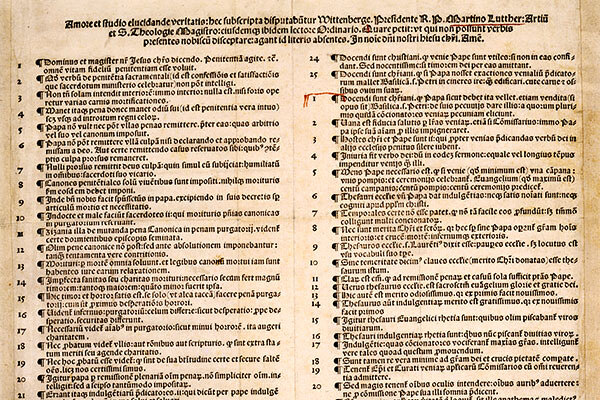 Amore et studio elucidande veritatis: hec subscripta disputabūtur Wittenberge. Presidente R. P. Martino Lutther: Artiū
et S. Theologie Magistro: eiusdemq̃ ibidem lectore Ordinario. Quare petit: vt qui non possunt verbis
presentes nobiscū disceptare: agant id literis absentes. In noīe dñi nostri hiesu chr̄i. Amē.
1 ¶ Dominus et magister nr̄ Jesus chr̄s dicendo. Penitentiā agite. τc̄.
omnē vitam fidelium penitentiam esse voluit.
2 ¶ Qd̄ verbū de penitētia sacramentali (id est confessiōis et satisfactiōis
que sacerdotum ministerio celebratur) non pōt intelligi.
3 ¶ Non tn̄ solam intendit interiorē: immo interior nulla est. nisi foris ope
retur varias carnis mortificationes.
4 ¶ Manet itaq̃ pena donec manet odiū sui (id est penitentia vera intus)
scꝫ vsq̃ ad introitum regni celorum.
5 ¶ Papa nō vult nec pōt vllas penas remittere. p̄ter eas: quas arbitrio
vel suo vel canonum imposuit.
6 ¶ Papa nō pōt remittere vllā culpā nisi declarando et approbando re
missam a deo. Aut certe remittendo casus reseruatos sibi: quibꝰ p̄tēs
ptis culpa prorsus remaneret.
7 ¶ Nulli prorsus remittit deus culpā: quin simul eū subijciat: humiliatū
in omnibus: sacerdoti suo vicario.
8 ¶ Canones penitētiales solū viuētibus sunt impositi. nihilq̃ morituris
fm̄ eosdē debet imponi.
9 ¶ Inde bn̄ nobis facit spūssctūs in papa. excipiendo in suis decretis sp̄
articulū mortis et necessitatis.
10 ¶ Indocte et male faciūt sacerdotes ij: qui morituris pn̄ias canonicas
in purgatorium reseruant.
11 ¶ Zizania illa de mutanda pena Canonica in penam purgatorij. vident̄
certe dormientibus episcopis seminata.
12 ¶ Olim pene canonice nō post: sed ante absolutionem imponebantur:
tanq̃ tentamenta vere contritionis.
13 ¶ Morituri: p mortē omnia soluunt. et legibus canonū mortui iam sunt
habentes iure earum relaxationem.
14 ¶ Imperfecta sanitas seu charitas morituri: necessario secum fert magnū
timorem: tantoq̃ maiorem: quāto minor fuerit ipsa.
15 ¶ Hic timor et horror: satis est. se solo (vt alia tacea) facere penā purga
torij: cum sit pximus desperatiōis horrori.
16 ¶ Videntꝛ infernus: purgatoriū: celum differre: sicut desperatio: ppe des
peratio. securitas differunt.
17 ¶ Necessariū videt̄ aīabꝰ in purgatorio: sicut minui horrorē. ita augeri
charitatem.
18 ¶ Nec pbatum videt̄ vllis: aut rōnibus aut scripturis. q̃ sint extra sta
tum meriti seu agende charitatis.
19 ¶ Nec hoc pbatū esse videt̄: q̃ sint de sua btītudine certe et secure saltē
oēs. licꝫ nos certissimi simus.
20 ¶ Igitur papa p remissionē plenariā oīm penaꝝ. nō simpliciter oīm. in
telligit. sed a seipso tantūmodo impositaꝝ.
21 ¶ Errant itaq̃ indulgētiarū pdicatores. ij: qui dicūt per pape indulgē
24 ¶ Docendi sunt chr̄iani. q̃ venie Pape sunt vtiles: si non in eas confi
dant. Sed nocentissime: si timorem dei per eas amittant.
25 ¶ Docendi sunt chr̄iani. q̃ si Papa nosset exactiones venialiū p̄dicato
rum mallet Basilicā. s. Petri in cineres ire: q̃ edificari. cute carne et os
sibus ouium suaꝝ.
1 ¶ Docendi sunt chr̄iani. q̃ Papa sicut debet ita vellet. etiam vendita (si
opus sit) Basilica. s. Petri: de suis pecunijs dare illis: a quorum plurī
mis quidā cōcionatores veniaꝝ pecuniam eliciunt.
2 ¶ Vana est fiducia salutis p lr̄as veniaꝝ. etiā si Cōmissarius: immo Pa
pa ipse suā aīam p illis impigneraret.
3 ¶ Hostes chr̄i et Pape sunt ij: qui ppter venias p̄dicandas verbū dei in
alijs ecclesijs penitus silere iubent.
4 ¶ Iniuria fit verbo dei: dū in eodē sermone: equale vel longius tēpus
impenditur venijs q̃ illi.
5 ¶ Mens Pape necessario est. q̃ si venie (qd̄ minimum est) vna cāpana:
vnis pompis: et ceremonijs celebrant̄. Euangelium (qd̄ maximū est)
centū campanis: centū pompis: centū ceremonijs predicet̄.
6 ¶ Thesauri ecclesie vn̄ Papa dat indulgētias: neq̃ satis noīati sunt: neq̃
cogniti apud pplm̄ chr̄isti.
7 ¶ Temporales certe nō esse patet. q̃ nō tā facile eos pfundūt: sꝫ tm̄mō
colligunt multi concionatorꝫ.
8 ¶ Nec sunt merita Chr̄i et sctōꝝ. q̃ hec sp̄ sine Papa opant̄ gr̄am hoīs
interioris: et crucē mortē: infernumq̃ exterioris.
9 ¶ Thesauros ecclīe s. Laurētiꝰ dixit esse: paupes ecclīe. sꝫ locutus est
vsu vocabuli suo tpe.
10 ¶ Sine temeritate dicimꝰ claues ecclīe (merito Chr̄i donatas) esse the
saurum istum.
11 ¶ Claꝝ est em̄. q̃ ad remissionē penaꝝ et casuū sola sufficit ptās Pape.
12 ¶ Verus thesaurus ecclīe est. sacrosctm̄ euāgelium glorie et gratie dei.
13 ¶ Hic aūt est merito odiosissimus. q̃ ex primis facit nouissimos.
14 ¶ Thesaurus aūt indulgentiaꝝ merito est gratissimus. q̃ ex nouissimis
facit primos
15 ¶ Igitur thesauri Euangelici rhetia sunt: quibus olim piscabant̄ viros
diuitiarum.
16 ¶ Thesauri indulgentiaꝝ rhetia sunt: qbus nūc piscant̄ diuitias viroꝝ.
17 ¶ Indulgētie: quas cōcionatores vociferant̄ maxīas gr̄as. intelligunt̄
vere tales quoad questum pmouendum.
18 ¶ Sunt tamen re vera minime ad gr̄am dei et crucis pietatē compate.
19 ¶ Tenent̄ Epi et Curati veniaꝝ apl̄icaꝝ Cōmissarios cū oī reueren
tia admittere.
20 ¶ Sed magis tenent̄ oībus oculis intendere: oībus auribꝰ aduertere:
ne p cōmissione Pape sua illi somnia p̄dicent.